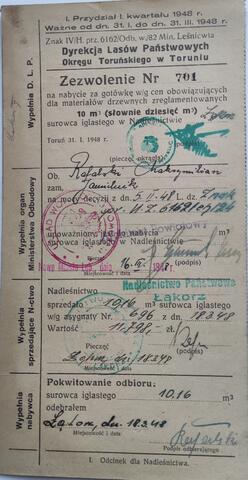 I. Przydział I. kwartału 1948 r.
Ważne od dn. 31. I. do dn. 31. III. 1948 r.
Znak IV/H. ptz. 6162/Odb. w/82 Min. Leśnictwa
Dyrekcja Lasów Państwowych
Okręgu Toruńskiego w Toruniu
Zezwolenie Nr 701
na nabycie za gotówkę w/g cen obowiązujących
dla materiałów drzewnych zreglamentowanych
10 m³ (słownie dziesięć m³)
surowca iglastego w Nadleśnictwie
Toruń 31. I. 1948 r.
(pieczęć okrągła)
Wypełnia D. L. P.
Ob. Rafalski
zam.
na mocy decyzji z dn. 5. II. 48
upoważniony jest do nabycia
surowca iglastego w Nadleśnictwie
(podpis)
(Miejscowość i data)
Wypełnia organ
Ministerstwa Odbudowy
Nadleśnictwo Państwowe
Łąkorz
Nadleśnictwo
sprzedało 10,16 m³ surowca iglastego
w/g asygnaty Nr 696 z dn. 18.3.48
Wartość 11.798,- zł.
Pieczęć (podpis)
Łąkorz, dn. 18.3.48
Miejscowość i data
Wypełnia
sprzedające N-ctwo
Pokwitowanie odbioru:
surowca iglastego 10,16 m³
odebrałem
Łąkorz, dn. 18.3.48
Miejscowość i data
Rafalski
Podpis odbierającego
Wypełnia
nabywca
I. Odcinek dla Nadleśnictwa.